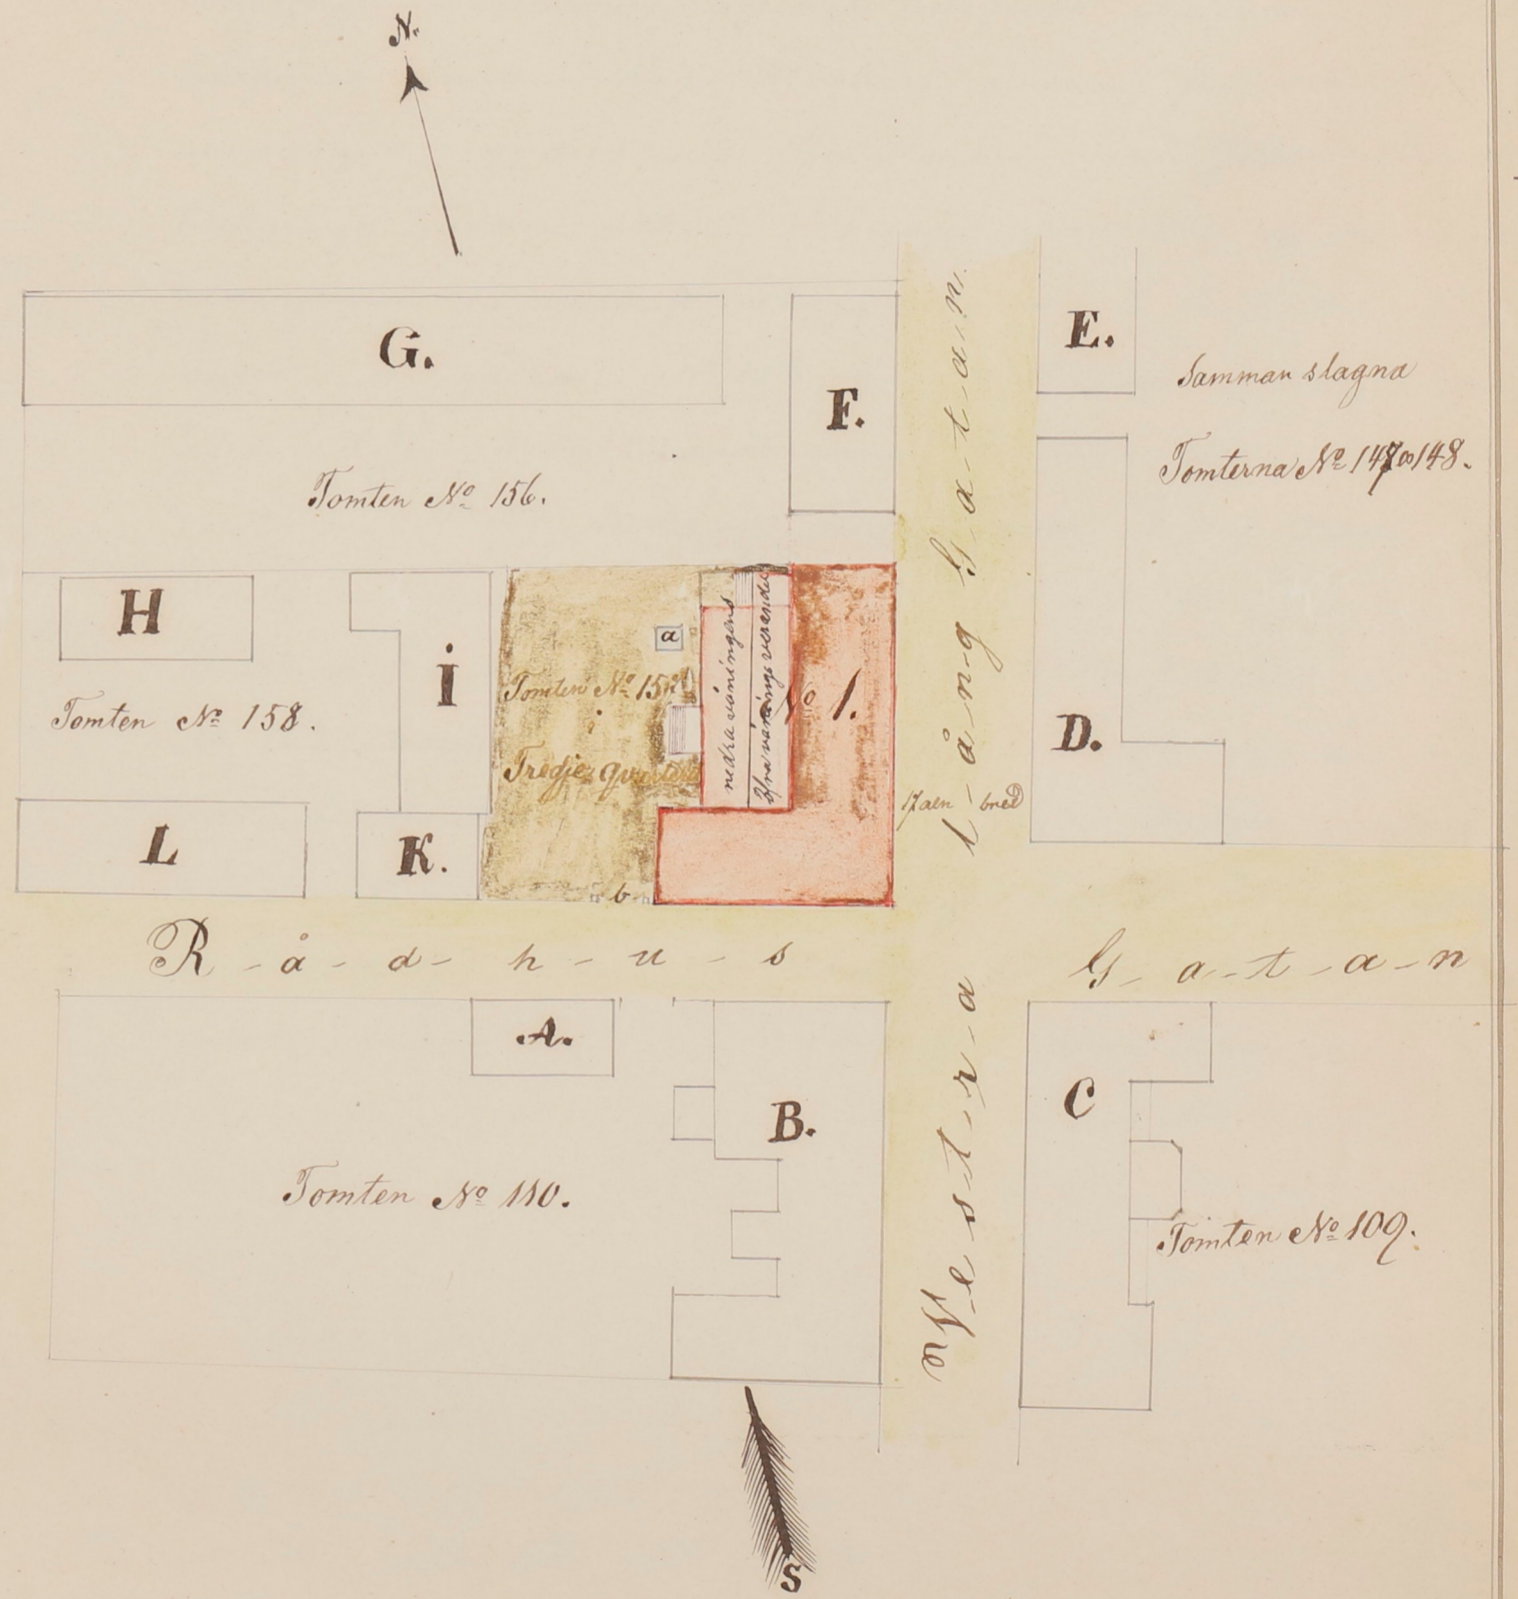 N.
G.
F.
E.
Samman slagna
Tomterna No 147 o 148.
Tomten No 156.
H
i
a
Tomten No
i
Tredje
nedra våningens
öfra vånings veranda
No 1.
Tomten No 158.
D.
17 aln bred
L
K.
b
R-å-d-h-u-s G-a-t-a-n
Vestra Lång Gatan
A.
B.
C
Tomten No 110.
Tomten No 109.
S